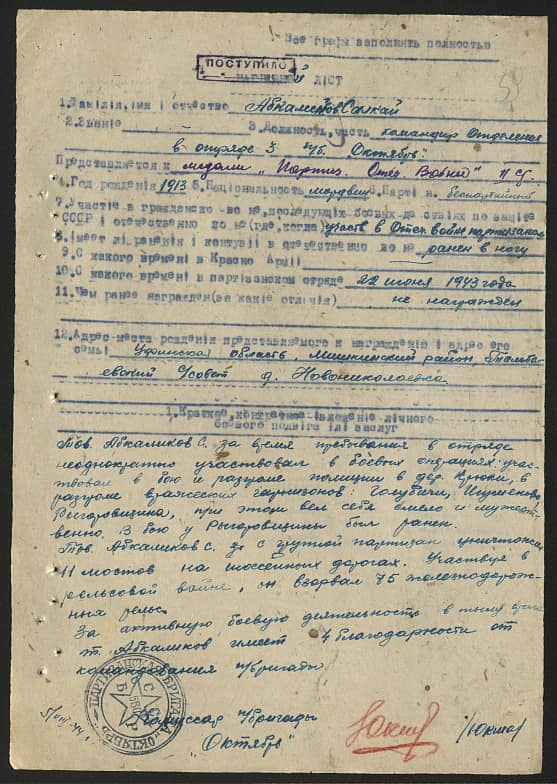 Все графы заполнить полностью
ПОСТУПИЛО
НАГРАДНОЙ ЛІСТ
1.Фамілія,імя і отчество Абкаликов Салкай
2.Званіе 3.Должность,часть командир отделения
в отряде 3 п/б. "Октябрь".
Представляется к медали "Партиз. Отеч. Войны" II ст.
4.Год рожденія 1913 5.Національность 6.Партійн. беспартийный
7.Участіе в гражданской войне,последующіх боевых действіях по защіте
СССР і отечественной войне(где,когда) участв в Отеч. войне партизаном
8.Імеет лі раненія і контузіі в отечественной войне ранен в ногу
9.С какого временя в Красной Арміі
10.С какого временя в партіванском отряде 22 июня 1943 года
11.Чем ранее награжден(за какіе отлічія) не награжден
12.Адрес места рожденія представляемого к награжденію і адрес его
семьі Уфимская область, Мишкинский район,
евский с/совет д. Новониколаевка
1.Краткое,конкретное ізложеніе лічного
боевого подвіга ілі заслуг
Тов. Абкаликов С. за время пребывания в отряде
неоднократно участвовал в боевых операциях: участ-
твовал в бою и разгроме полиции в дер. Крюки, в
разгроме вражеских гарнизонов:
при этом вел себя смело и мужест-
венно. В бою у был ранен.
Тов. Абкаликов С. с группой партизан уничтожил
11 мостов на шоссейных дорогах. Участвуя в
рельсовой войне, он взорвал 75 железнодорож-
ных рельс.
За активную боевую деятельность в тылу врага
т. Абкаликов имеет 4 благодарности от
командования п/бригады
ПАРТИЗАНСКАЯ БРИГАДА "ОКТЯБРЬ"
Б С С Р
Комиссар п/бригады
"Октябрь"